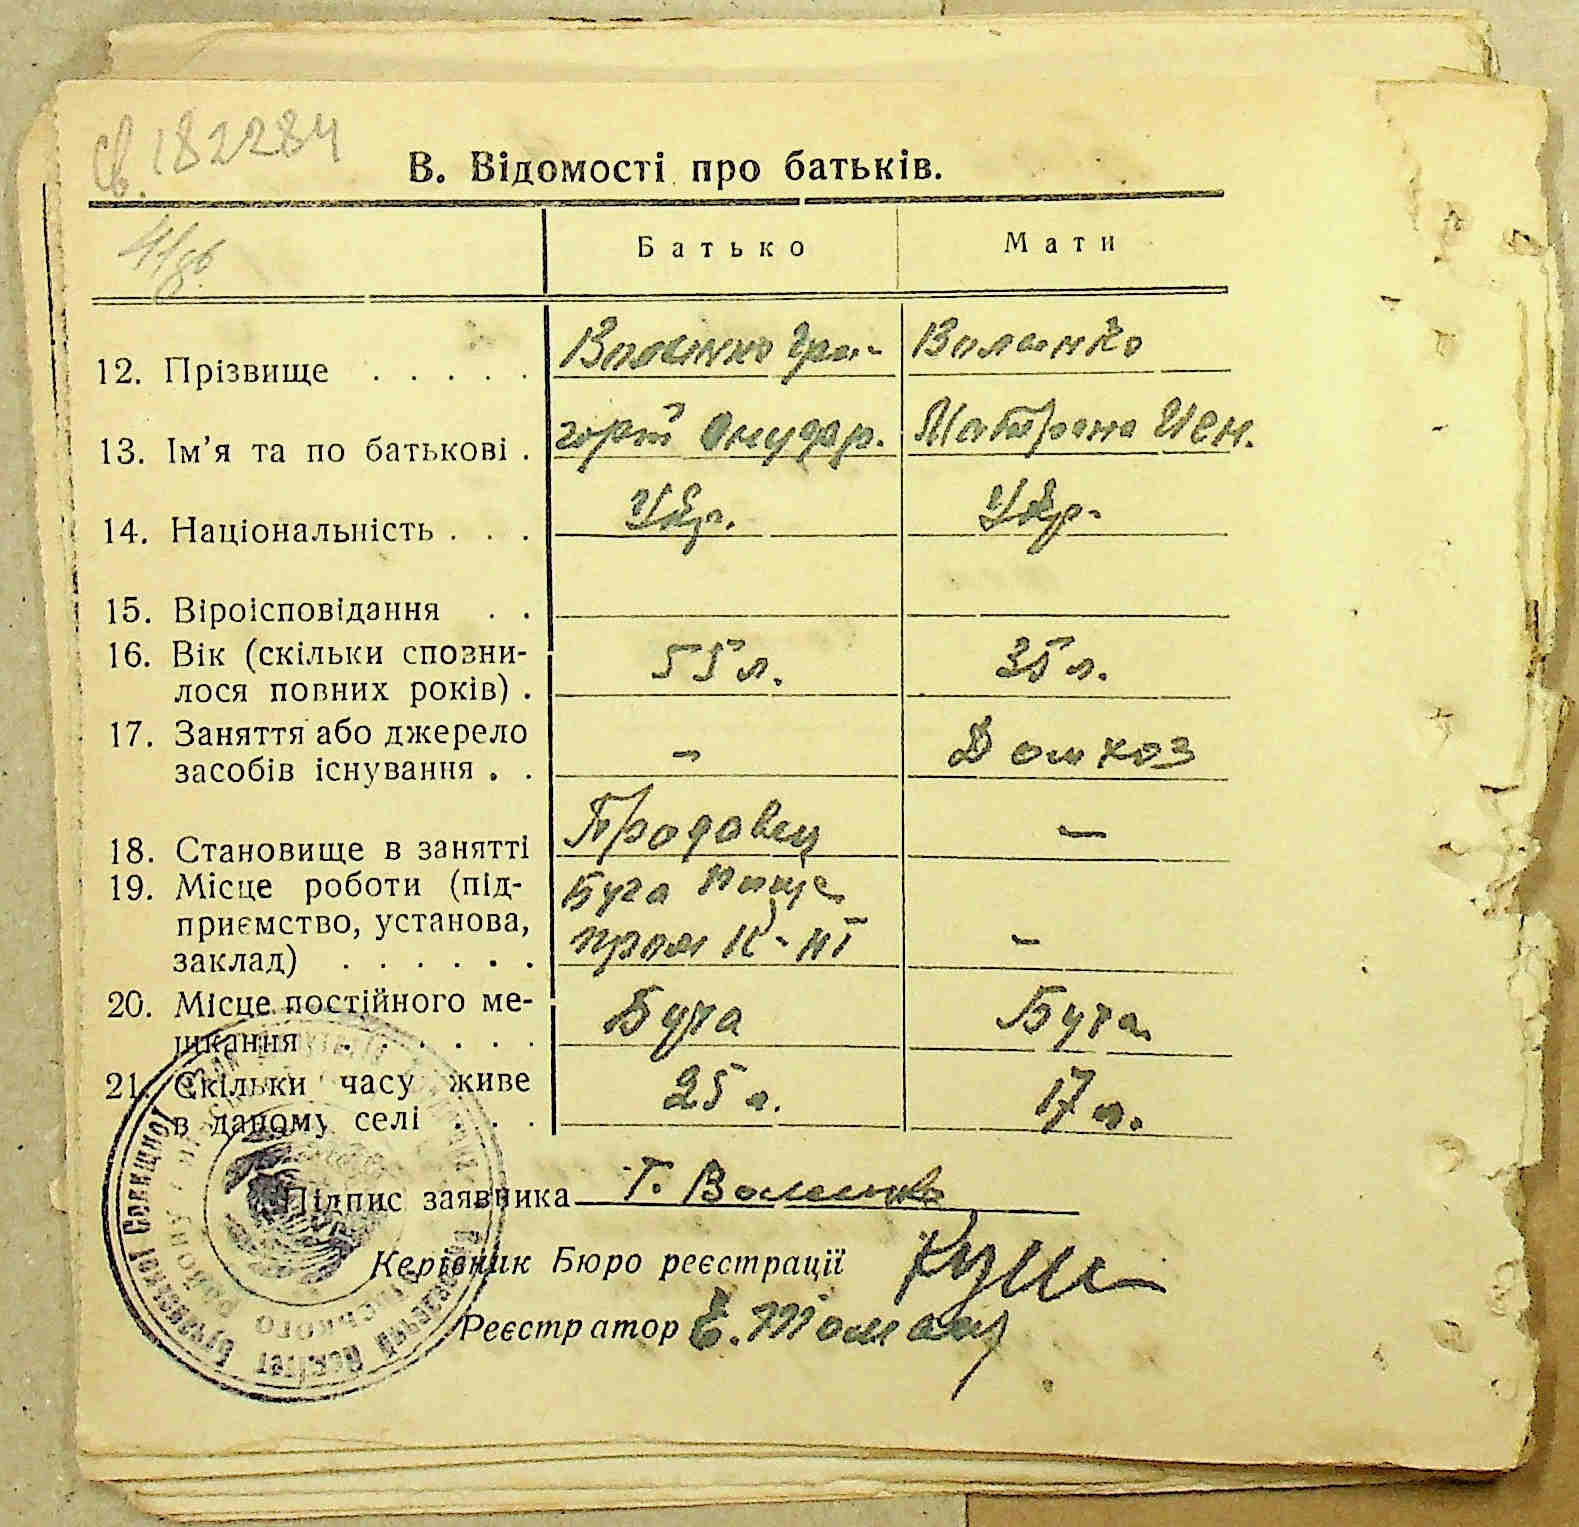 Св. 182284
В. Відомості про батьків.
Батько Мати
12. Прізвище . . . . . Воленко Гри- Воленко
13. Ім'я та по батькові . горій Онуфр. Матрона
14. Національність . . . Укр. Укр.
15. Віроісповідання . .
16. Вік (скільки спозни-
лося повних років) . 55 л. 35 л.
17. Заняття або джерело
засобів існування . . - Домхоз
18. Становище в занятті Продавец -
19. Місце роботи (під- Буча Пище
приємство, установа,
заклад) . . . . . . пром К-нт -
20. Місце постійного ме- Буча Буча
шкання . . . . . .
21. Скільки часу живе 25 л. 17 л.
в даному селі . . .
Підпис заявника Г. Воленко
Керівник Бюро реєстрації
Реєстратор Е.
Виконавчий Комітет Бучанської Селищної
району